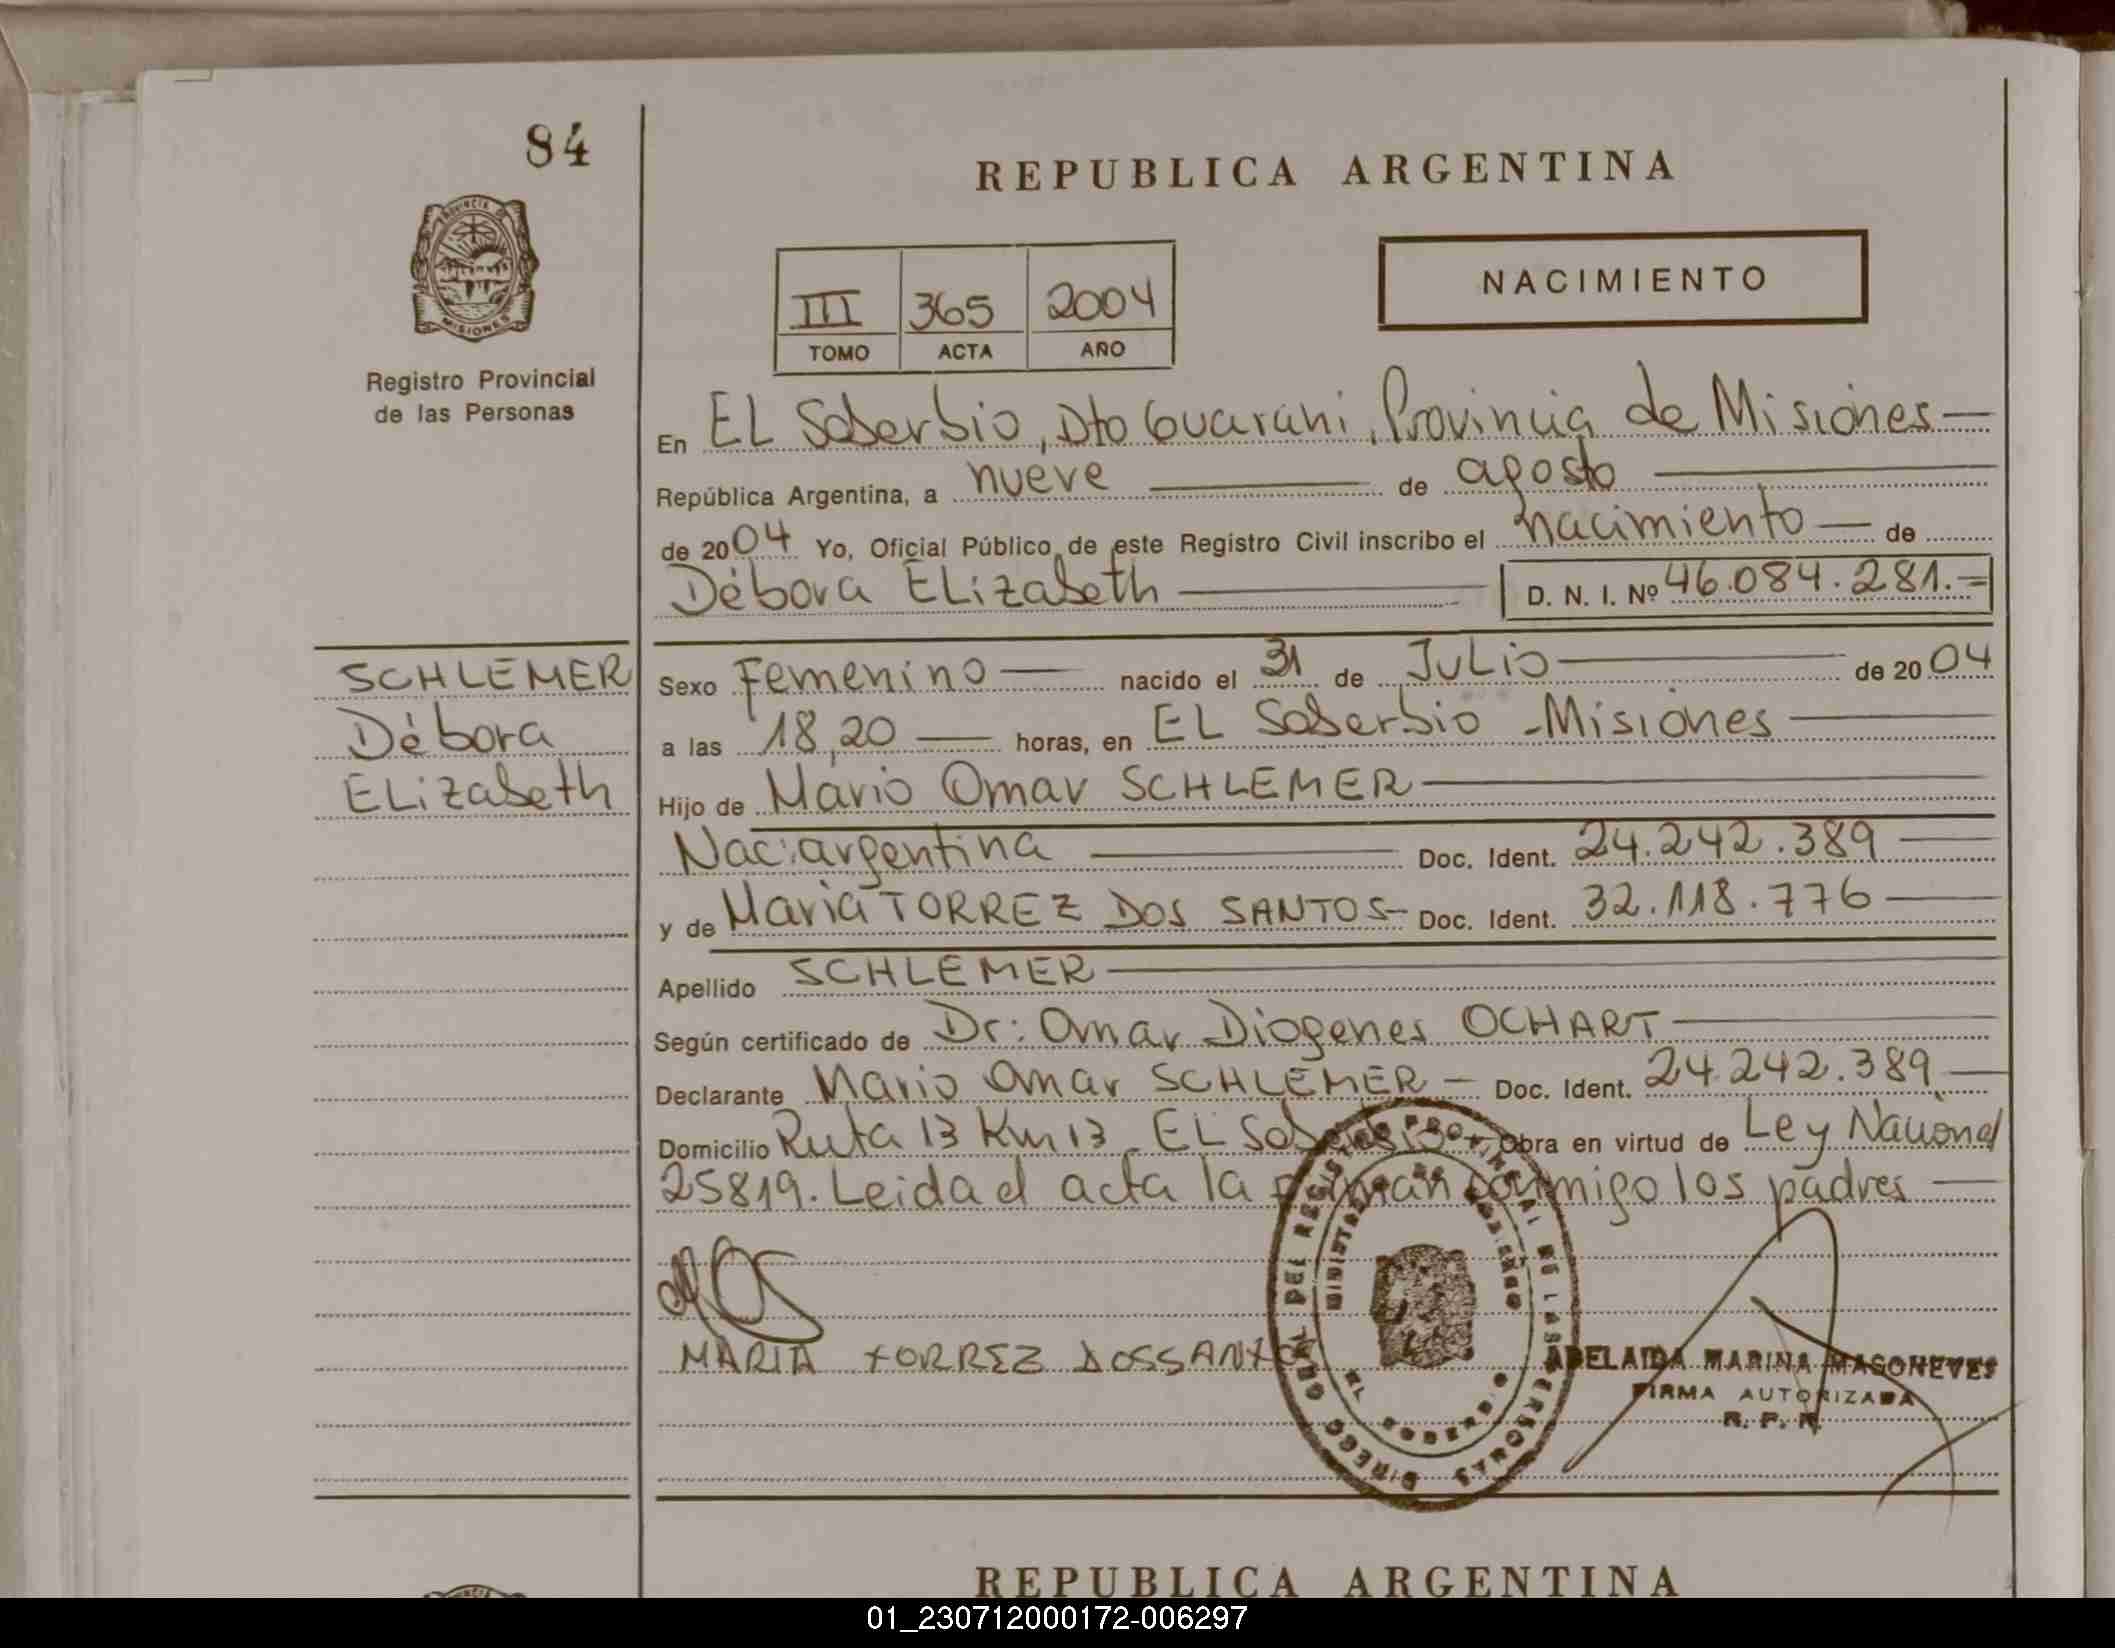 84
REPUBLICA ARGENTINA
PROVINCIA DE
MISIONES
Registro Provincial
de las Personas
NACIMIENTO
III 365 2004
TOMO ACTA AÑO
En EL Soberbio, Dto Guaraní, Provincia de Misiones
República Argentina, a nueve de agosto
de 2004 Yo, Oficial Público de este Registro Civil inscribo el nacimiento de
Débora ELizabeth D. N. I. Nº 46.084.281.=
SCHLEMER
Débora
ELizabeth
Sexo Femenino nacido el 31 de JuLio de 2004
a las 18,20 horas, en EL Soberbio - Misiones
Hijo de Mario Omar SCHLEMER
Nac: argentina Doc. Ident. 24.242.389
y de Maria TORREZ DOS SANTOS- Doc. Ident. 32.118.776
Apellido SCHLEMER
Según certificado de Dr: Omar Diogenes OCHART
Declarante Mario Omar SCHLEMER - Doc. Ident. 24.242.389
Domicilio Ruta 13 Km 13 - EL Soberbio - Obra en virtud de Ley Nacional
25819. Leida el acta la firman conmigo los padres
MARIA TORREZ DOSSANTO
DIRECC GRAL DEL REGISTRO PROVINCIAL DE LAS PERSONAS
MINISTERIO DE GOBIERNO
EL SOBERBIO
ADELAIDA MARINA MASONEVES
FIRMA AUTORIZADA
R. P. P.
REPUBLICA ARGENTINA
01_230712000172-006297